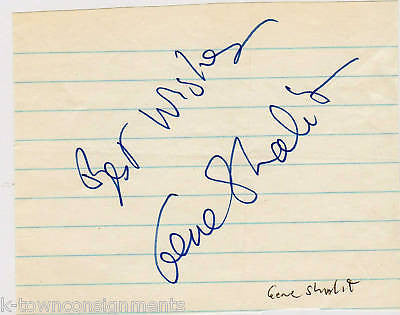 Best Wishes
Gene Shalit
Gene Shalit
k-townconsignments